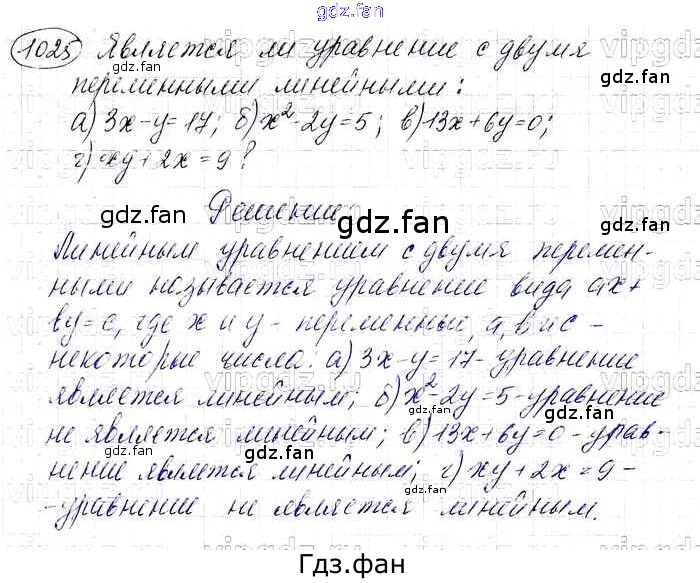 gdz.fan
1025 Является ли уравнение с двумя
переменными линейными:
а) 3x-y=17; б) x²-2y=5; в) 13x+6y=0;
г) xy+2x=9?
Решение
Линейным уравнением с двумя перемен-
ными называется уравнение вида ax+
by=c, где x и y - переменные, a, b и c -
некоторые числа: а) 3x-y=17- уравнение
является линейным; б) x²-2y=5-уравнение
не является линейным; в) 13x+6y=0-урав-
нение является линейным; г) xy+2x=9-
-уравнение не является линейным.
gdz.fan
gdz.fan
gdz.fan
gdz.fan
gdz.fan
gdz.fan
gdz.fan
gdz.fan
gdz.fan
gdz.fan
Гдз.фан